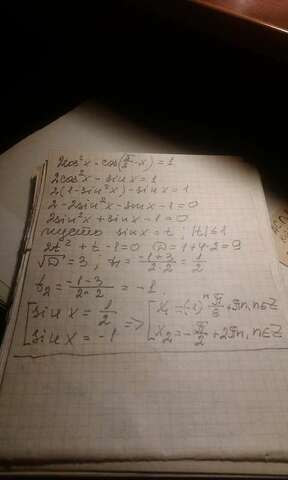 2cos²x - cos(π/2 - x) = 1
2cos²x - sin x = 1
2(1 - sin²x) - sin x = 1
2 - 2sin²x - sin x - 1 = 0
2sin²x + sin x - 1 = 0
пусто sin x = t; |t| ≤ 1
2t² + t - 1 = 0 D = 1 + 4·2 = 9
√D = 3; t₁ = (-1+3)/(2·2) = 1/2
t₂ = (-1-3)/(2·2) = -1.
[ sin x = 1/2 => [ x₁ = (-1)ⁿ π/6 + πn, n∈Z
[ sin x = -1 [ x₂ = -π/2 + 2πn, n∈Z